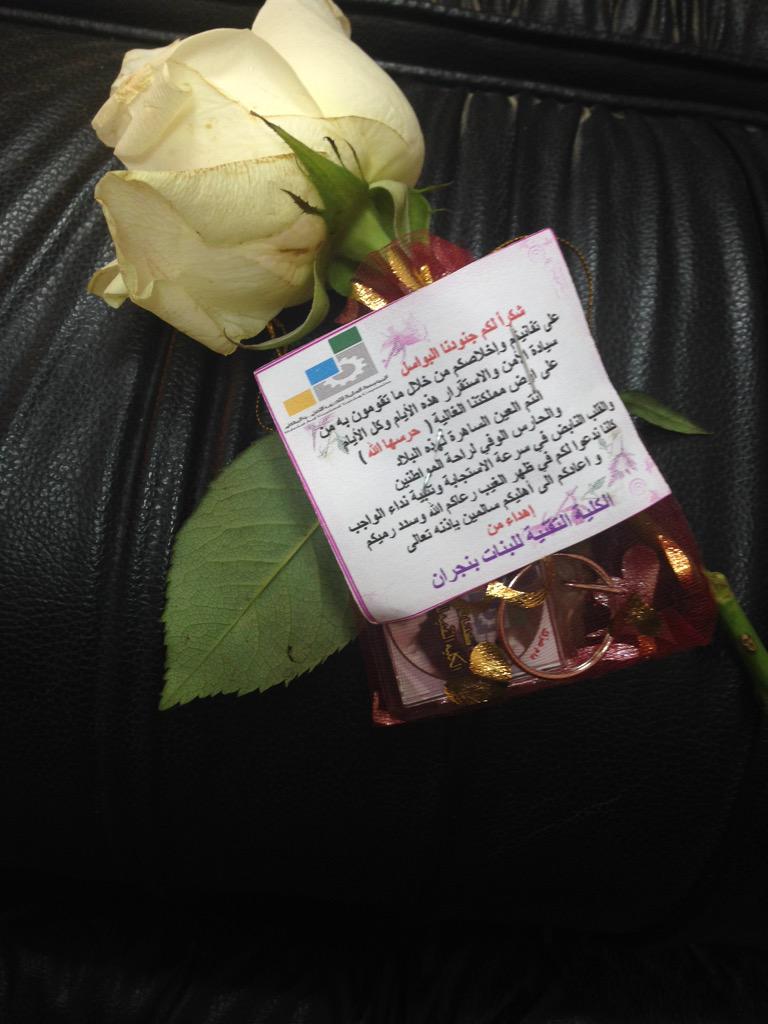 شكراً لكم جنودنا البواسل
على تفانيكم وإخلاصكم من خلال ما تقومون به من
سيادة الأمن والاستقرار هذه الأيام وكل الأيام
على أرض مملكتنا الغالية ( حرسها الله )
أنتم العين الساهرة لهذه البلاد
والحارس الوفي لراحة المواطنين
والقلب النابض في سرعة الاستجابة وتلبية نداء الواجب
كلنا ندعوا لكم في ظهر الغيب رعاكم الله وسدد رميكم
و اعادكم الى أهليكم سالمين باذنه تعالى
إهداء من
الكلية التقنية للبنات بنجران